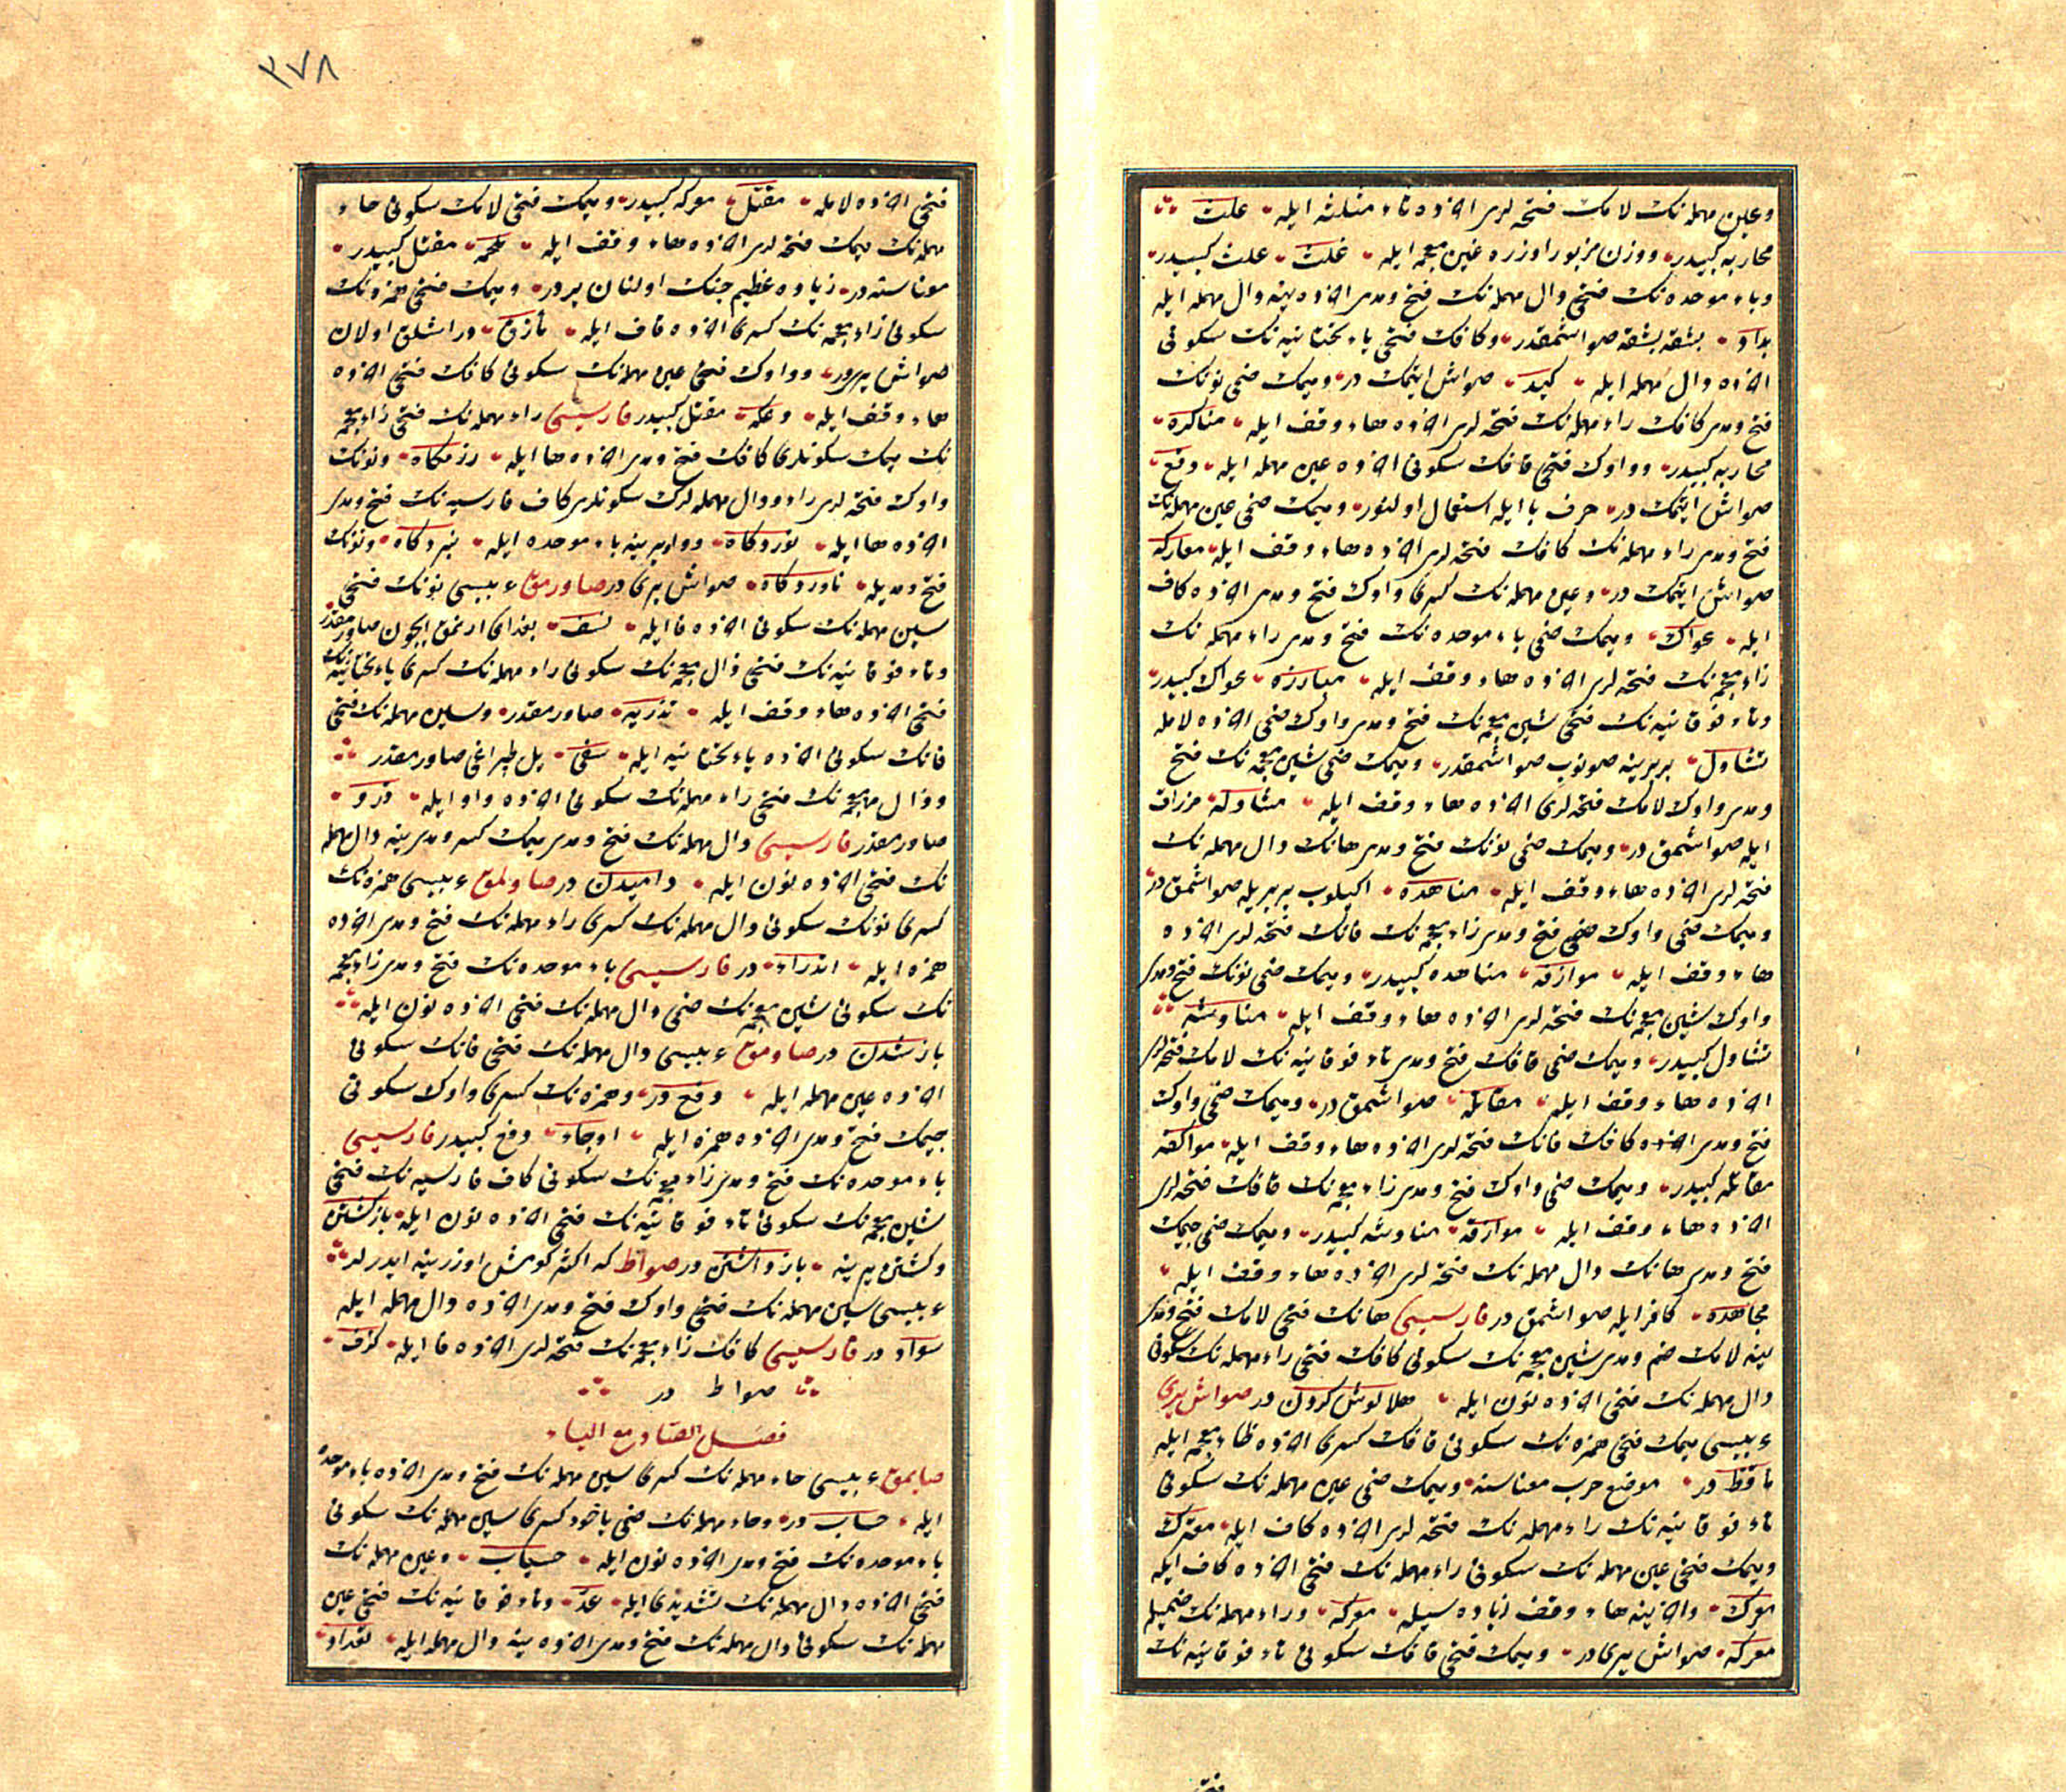 وعين مهمله نك لامك فتحه لرى اخرده ثاء مثلثه ايله علث
محاربه كبيدر ووزن مزبور اوزره غين معجمه ايله غلث علث كبيدر
وباء موحده نك فتحى دال مهمله نك فتح ومدى اخرده ينه دال مهمله ايله
بداد بشقه بشقه صواشمقدر وكافك فتحى ياء تحتانيه نك سكونى
اخرده دال مهمله ايله كيد صواش ايتمك در وميمك ضمى نونك
فتح ومدى كافك راء مهمله نك فتحه لرى اخرده هاء وقف ايله مناكره
محاربه كبيدر وواوك فتحى قافك سكونى اخرده عين مهمله ايله وقع
صواش ايتمك در حرف با ايله استعمال اولنور وميمك ضمى عين مهمله نك
فتح ومدى راء مهمله نك كافك فتحه لرى اخرده هاء وقف ايله معاركه
صواش ايتمك در وعين مهمله نك كسرى واوك فتح ومدى اخرده كاف
ايله عواك وميمك ضمى باء موحده نك فتح ومدى راء مهمله نك
زاء معجمه نك فتحه لرى اخرده هاء وقف ايله مبارزه عواك كبيدر
وتاء فوقانيه نك فتحى شين معجمه نك فتح ومدى واوك ضمى اخرده لامله
تشاول بربرينه صونوب صواشمقدر وميمك ضمى شين معجمه نك فتح
ومدى واوك لامك فتحه لرى اخرده هاء وقف ايله مشاوله مزراق
ايله صواشمق در وميمك ضمى نونك فتح ومدى هانك دال مهمله نك
فتحه لرى اخرده هاء وقف ايله مناهده اكيلوب بربريله صواشمق در
وميمك ضمى واوك ضمى فتح ومدى زاء معجمه نك فانك فتحه لرى اخرده
هاء وقف ايله موازفه مناهده كبيدر وميمك ضمى نونك فتح ومدى
واوك شين معجمه نك فتحه لرى اخرده هاء وقف ايله مناوشه
تشاول كبيدر وميمك ضمى قافك فتح ومدى تاء فوقانيه نك لامك فتحه لرى
اخرده هاء وقف ايله مقاتله صواشمق در وميمك ضمى واوك
فتح ومدى اخرده كافك فانك فتحه لرى اخرده هاء وقف ايله مواكفه
مقاتله كبيدر وميمك ضمى واوك فتح ومدى زاء معجمه نك قافك فتحه لرى
اخرده هاء وقف ايله موازقه مناوشه كبيدر وميمك ضمى جيمك
فتح ومدى هانك دال مهمله نك فتحه لرى اخرده هاء وقف ايله
مجاهده كافر ايله صواشمق در فارسيسى هانك فتحى لامك فتح ومدى
ينه لامك ضم ومدى شين معجمه نك سكونى كافك فتحى راء مهمله نك سكونى
دال مهمله نك فتحى اخرده نون ايله هلالوش كردن در صواش يرى
عربيسى ميمك فتحى همزه نك سكونى قافك كسرى اخرده ظاء معجمه ايله
مأقظ در موضع حرب معناسنه وميمك ضمى عين مهمله نك سكونى
تاء فوقانيه نك راء مهمله نك فتحه لرى اخرده كاف ايله معترك
وميمك فتحى عين مهمله نك سكونى راء مهمله نك فتحى اخرده كاف ايله
معرك واخرينه هاء وقف زياده سيله معركه وراء مهمله نك ضميله
معركه صواش يرى در وميمك فتحى قافك سكونى تاء فوقانيه نك
٣٧٨
فتحى اخرده لامله مقتل معركه كبيدر وميمك فتحى لامك سكونى حاء
مهمله نك ميمك فتحه لرى اخرده هاء وقف ايله ملحمه مقتل كبيدر
معناسنه در زياده عظيم جنك اولنان يردر وميمك فتحى همزه نك
سكونى زاء معجمه نك كسرى اخرده قاف ايله مأزق اولان
صواش يريدر وواوك فتحى عين مهمله نك سكونى كافك فتحى اخرده
هاء وقف ايله وعكه مقتل كبيدر فارسيسى راء مهمله نك فتحى زاء معجمه
نك ميمك سكونلرى كافك فتح ومدى اخرده ها ايله رزمكاه ونونك
واوك فتحه لرى راء ودال مهمله لرك سكونلرى كاف فارسيه نك فتح ومدى
اخرده ها ايله نوردكاه وواو يرينه باء موحده ايله نبردكاه ونونك
فتح ومديله ناوردكاه صواش يرى در صاورمق عربيسى نونك فتحى
سين مهمله نك سكونى اخرده فا ايله نسف بغداى ارتمق ايچون صاورمقدر
وتاء فوقانيه نك فتحى ذال معجمه نك سكونى راء مهمله نك كسرى ياء تحتانيه نك
فتحى اخرده هاء وقف ايله تذريه صاورمقدر وسين مهمله نك فتحى
فانك سكونى اخرده ياء تحتانيه ايله سفى يل طپراغى صاورمقدر
وذال معجمه نك فتحى راء مهمله نك سكونى اخرده واو ايله ذرو
صاورمقدر فارسيسى دال مهمله نك فتح ومدى ميمك كسر ومدى ينه دال مهمله
نك فتحى اخرده نون ايله داميدن در صاولمق عربيسى همزه نك
كسرى نونك سكونى دال مهمله نك كسرى راء مهمله نك فتح ومدى اخرده
همزه ايله اندراء در فارسيسى باء موحده نك فتح ومدى زاء معجمه
نك سكونى شين معجمه نك ضمى دال مهمله نك فتحى اخرده نون ايله
باز شدن در صاومق عربيسى دال مهمله نك فتحى فانك سكونى
اخرده عين مهمله ايله دفع در وهمزه نك كسرى واوك سكونى
جيمك فتح ومدى اخرده همزه ايله اوجاء دفع كبيدر فارسيسى
باء موحده نك فتح ومدى زاء معجمه نك سكونى كاف فارسيه نك فتحى
شين معجمه نك سكونى تاء فوقانيه نك فتحى اخرده نون ايله بازكشتن
وكشتن يرينه باز داشتن در صواط كه اكثر كومش اوزرينه ايدرلر
عربيسى سين مهمله نك فتحى واوك فتح ومدى اخرده دال مهمله ايله
سواد در فارسيسى كافك زاء معجمه نك فتحه لرى اخرده فا ايله كزف
صواط در
فصل الصاد مع الياء
صايمق عربيسى حاء مهمله نك كسرى سين مهمله نك فتح ومدى اخرده باء موحده
ايله حساب در وحاء مهمله نك ضمى ياخود كسرى سين مهمله نك سكونى
باء موحده نك فتح ومدى اخرده نون ايله حسبان وعين مهمله نك
فتحى اخرده دال مهمله نك تشديدى ايله عد وتاء فوقانيه نك فتحى عين
مهمله نك سكونى دال مهمله نك فتح ومدى اخرده ينه دال مهمله ايله تعداد